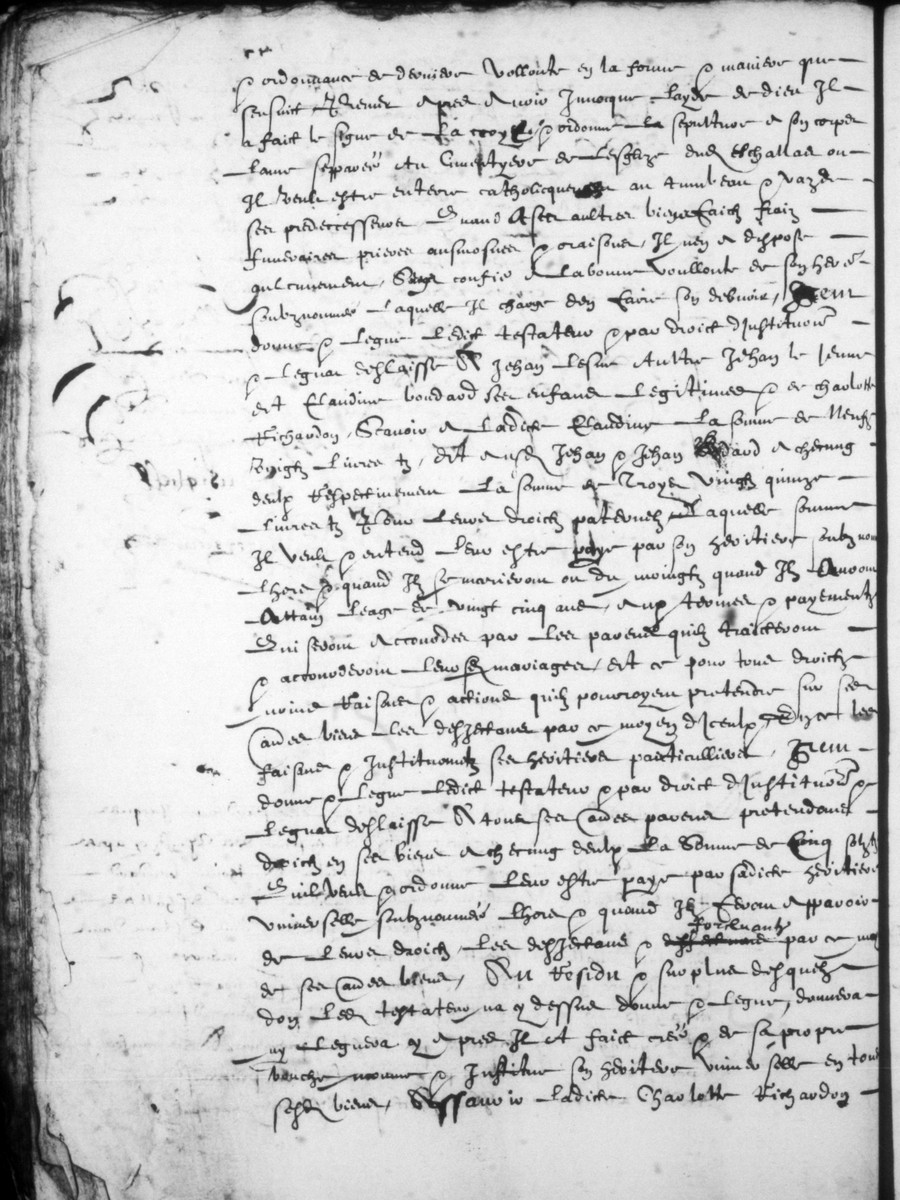 & ordonnance de derniere vollonte en la forme & maniere que
sensuict Premier apres avoir Invocque layde de dieu Il
a faict le signe de la croyx & ordonne la sepulture a son corps
lame sepparee au Cimentyere de lesglize dud eschallas ou
Il veult estre enterre catholicquement au tumbeau & vaz de
ses predeccesseurs Quand a ses aultres bienffaictz fraiz
funeraires prieres ausmosnes & oraisons, Il nen a dispose
aulcunement, Sens confie a la bonne voullonte de son heretiere
soubznommee laquelle Il charge den faire son debvoir, Item
donne & legue ledict testateur & par droict dInstitution
& legat deslaisse A Jehan lesne Aultre Jehan le Jeune
et Claudine boudard ses enfans legitimes & de charlotte
Richardon, Scavoir a ladicte Claudine la somme de Neufz
Vingtz livres tz, Et ausd Jehan & Jehan bodard a chescung
deulx Respectivement la somme de Troys vingtz quinze
livres tz Pour leurs droictz paternelz Laquelle somme
Il veult & entend leur estre paye par son heritiere soubznom
lhors & quand Ilz se marieront ou du moingtz quand Ilz Auront
Attainct leage de vingt cinq ans, aux termes & payementz
Qui seront accourdes par les parens quilz traicteront
& accourderont leursd mariages, Et ce pour tous droictz
noms Raisons & actions quilz pourroyent pretendre sur ses
Causes biens les desjectans par ce moyen dIceulx Et les
faisans & Instituantz ses heritiers particulliers, Item
donne & legue ledict testateur & par droict dInstitution &
legat deslaisse A tous ses Causes parens pretendans
droict en ses biens a chescung deulx la Somme de Cinq solz
Quil veult & ordonne leur estre paye par sadicte heritiere
universelle soubznommee lhors & quand Ilz feront Apparoir
de leurs droictz les desjectans &
forcluantz
par ce moy
de ses Causes biens, Au Residu & surplus desquelz
don led testateur na cy dessus donne & legue, donnera
ny leguera cy apres Il a faict cree & de sa propre
bouche nomme & Institue son heritiere universelle en tous
sesd biens, Assavoir ladicte Charlotte Richardon